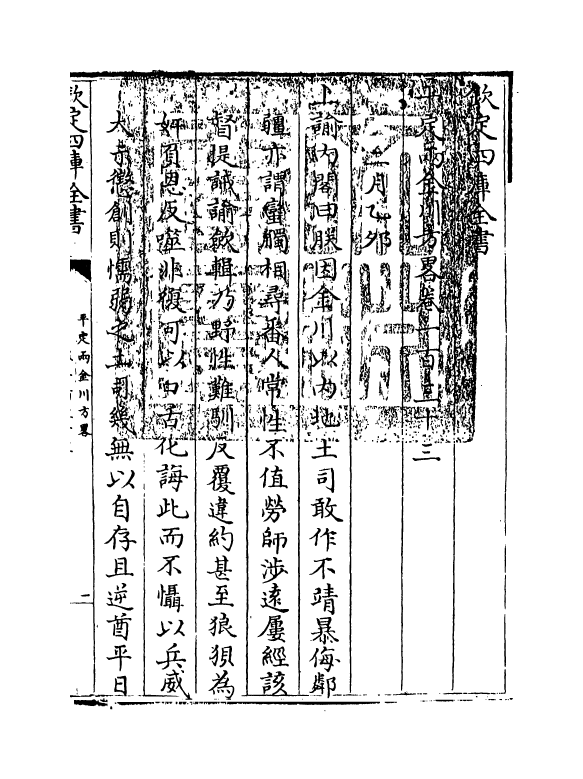 欽定四庫全書
平定兩金川方畧卷一百三十三
二月乙卯
上諭內閣曰朕因金川以內地土司敢作不靖暴侮鄰
疆亦謂蠻觸相尋番人常性不值勞師涉遠屢經該
督提誡諭歛輯乃野性難馴反覆違約甚至狼狽為
奸負恩反噬非復可以口舌化誨此而不懾以兵威
大示懲創則懦弱之土司幾無以自存且逆酋平日
欽定四庫全書
平定兩金川方畧